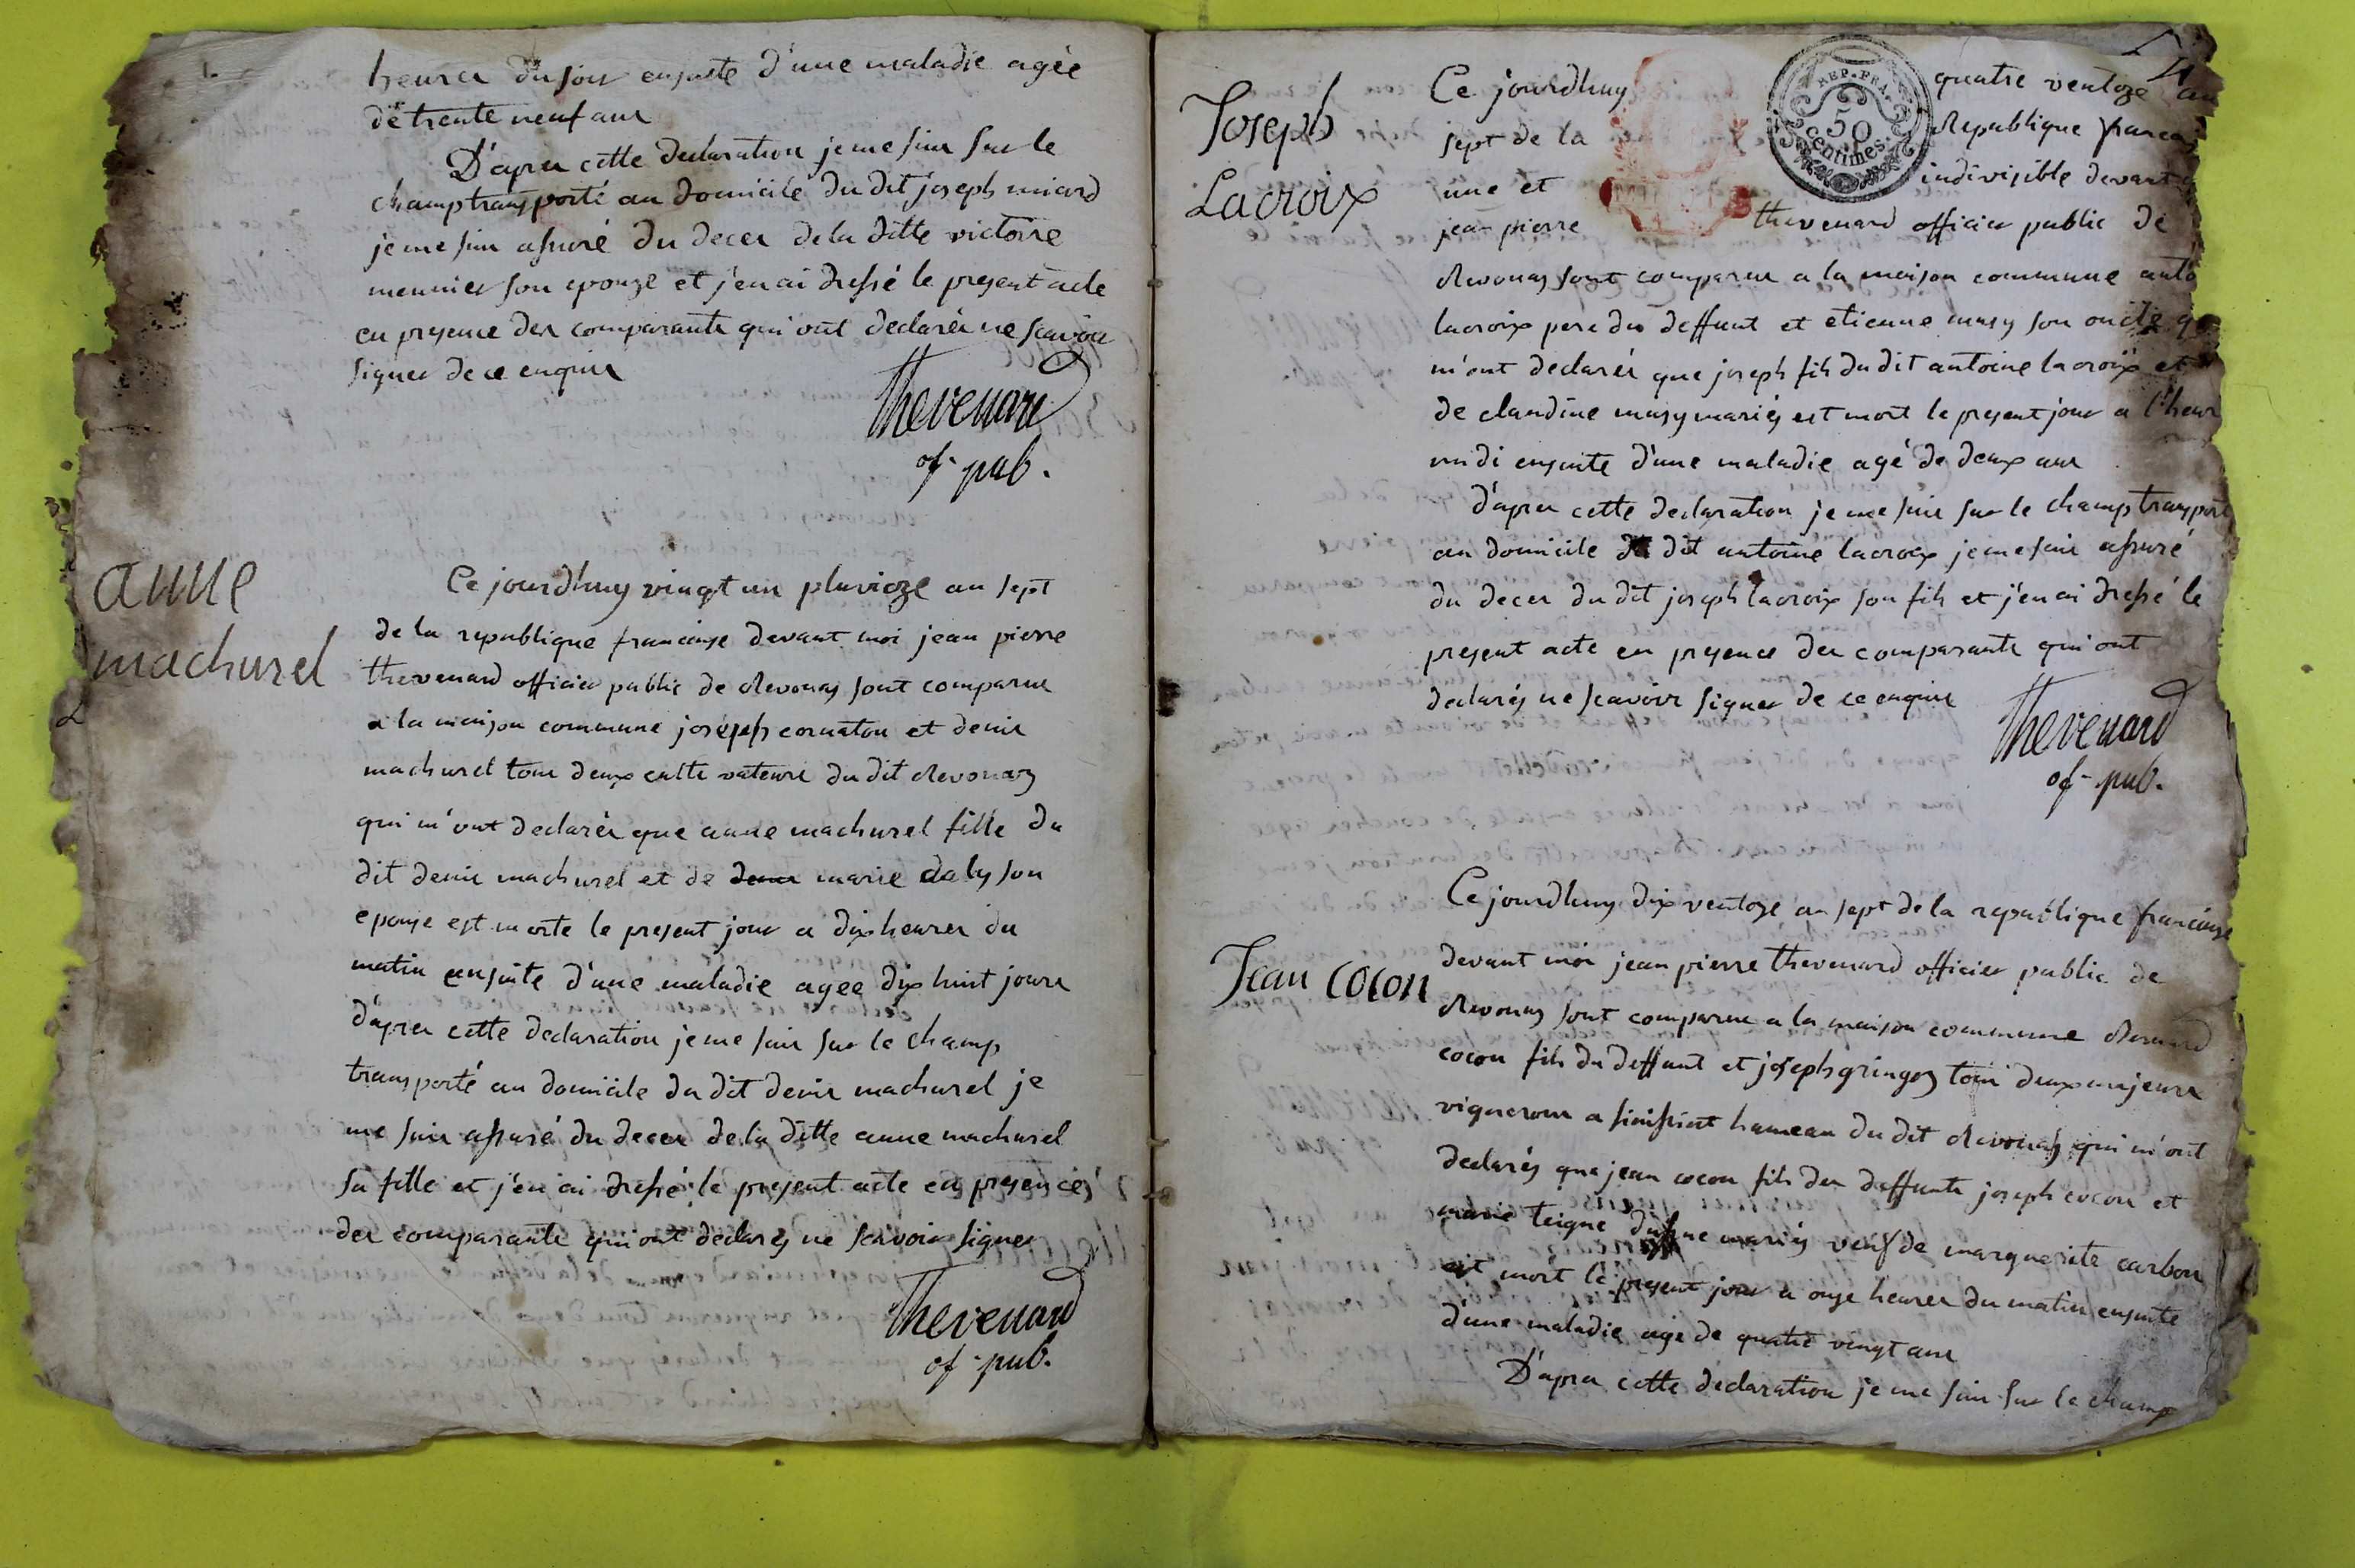 heures du soir ensuite d'une maladie agée
de trente neuf ans
D'apres cette declaration je me suis sur le
champ transporté au domicile du dit joseph miard
je me suis assuré du deces de la ditte victoire
meunier son epouze et j'en ai dressé le present acte
en presence des comparants qui ont declarés ne scavoir
signer de ce enquis
Thevenard
of. pub.
anne
machurel
Ce jourdhuy vingt un pluvioze an sept
de la republique francaise devant moi jean pierre
thevenard officier public de Revonas sont comparus
a la maison commune joseph cornaton et denis
machurel tous deux culte vateurs du dit Revonas
qui m'ont declarés que anne machurel fille du
dit denis machurel et de marie daly son
epouse est morte le present jour a dix heures du
matin ensuite d'une maladie agee dix huit jours
d'apres cette declaration je me suis sur le champ
transporté au domicile du dit denis machurel je
me suis assuré du deces de la ditte anne machurel
sa fille et j'en ai dressé le present acte en presences
des comparants qui ont declarés ne scavoir signer
Thevenard
of. pub.
Joseph
Lacroix
REP. FRA.
50
Centimes.
Ce jourdhuy quatre ventoze an
sept de la Republique francai
une et indivisible devant
jean pierre thevenard officier public de
Revonas sont comparus a la maison commune anto
lacroix pere du deffunt et etienne musy son oncle q
m'ont declarés que joseph fils du dit antoine lacroix et
de claudine musy mariés est mort le present jour a l'heur
midi ensuite d'une maladie agé de deux ans
d'apres cette declaration je me suis sur le champ transport
au domicile du dit antoine lacroix je me suis assuré
du deces du dit joseph lacroix son fils et j'en ai dressé le
present acte en presence des comparants qui ont
declarés ne scavoir signer de ce enquis
Thevenard
of. pub.
Jean Cocon
Ce jourdhuy dix ventoze an sept de la republique francaise
devant moi jean pierre thevenard officier public de
Revonas sont comparus a la maison commune
cocon fils du deffunt et joseph gringoz tous deux majeurs
vignerons a hameau du dit Revonas qui m'ont
declarés que jean cocon fils des deffunts joseph cocon et
marie teigne mariés veuf de marguerite carbon
est mort le present jour a onze heures du matin ensuite
d'une maladie age de quatre vingt ans
D'apres cette declaration je me suis sur le champ